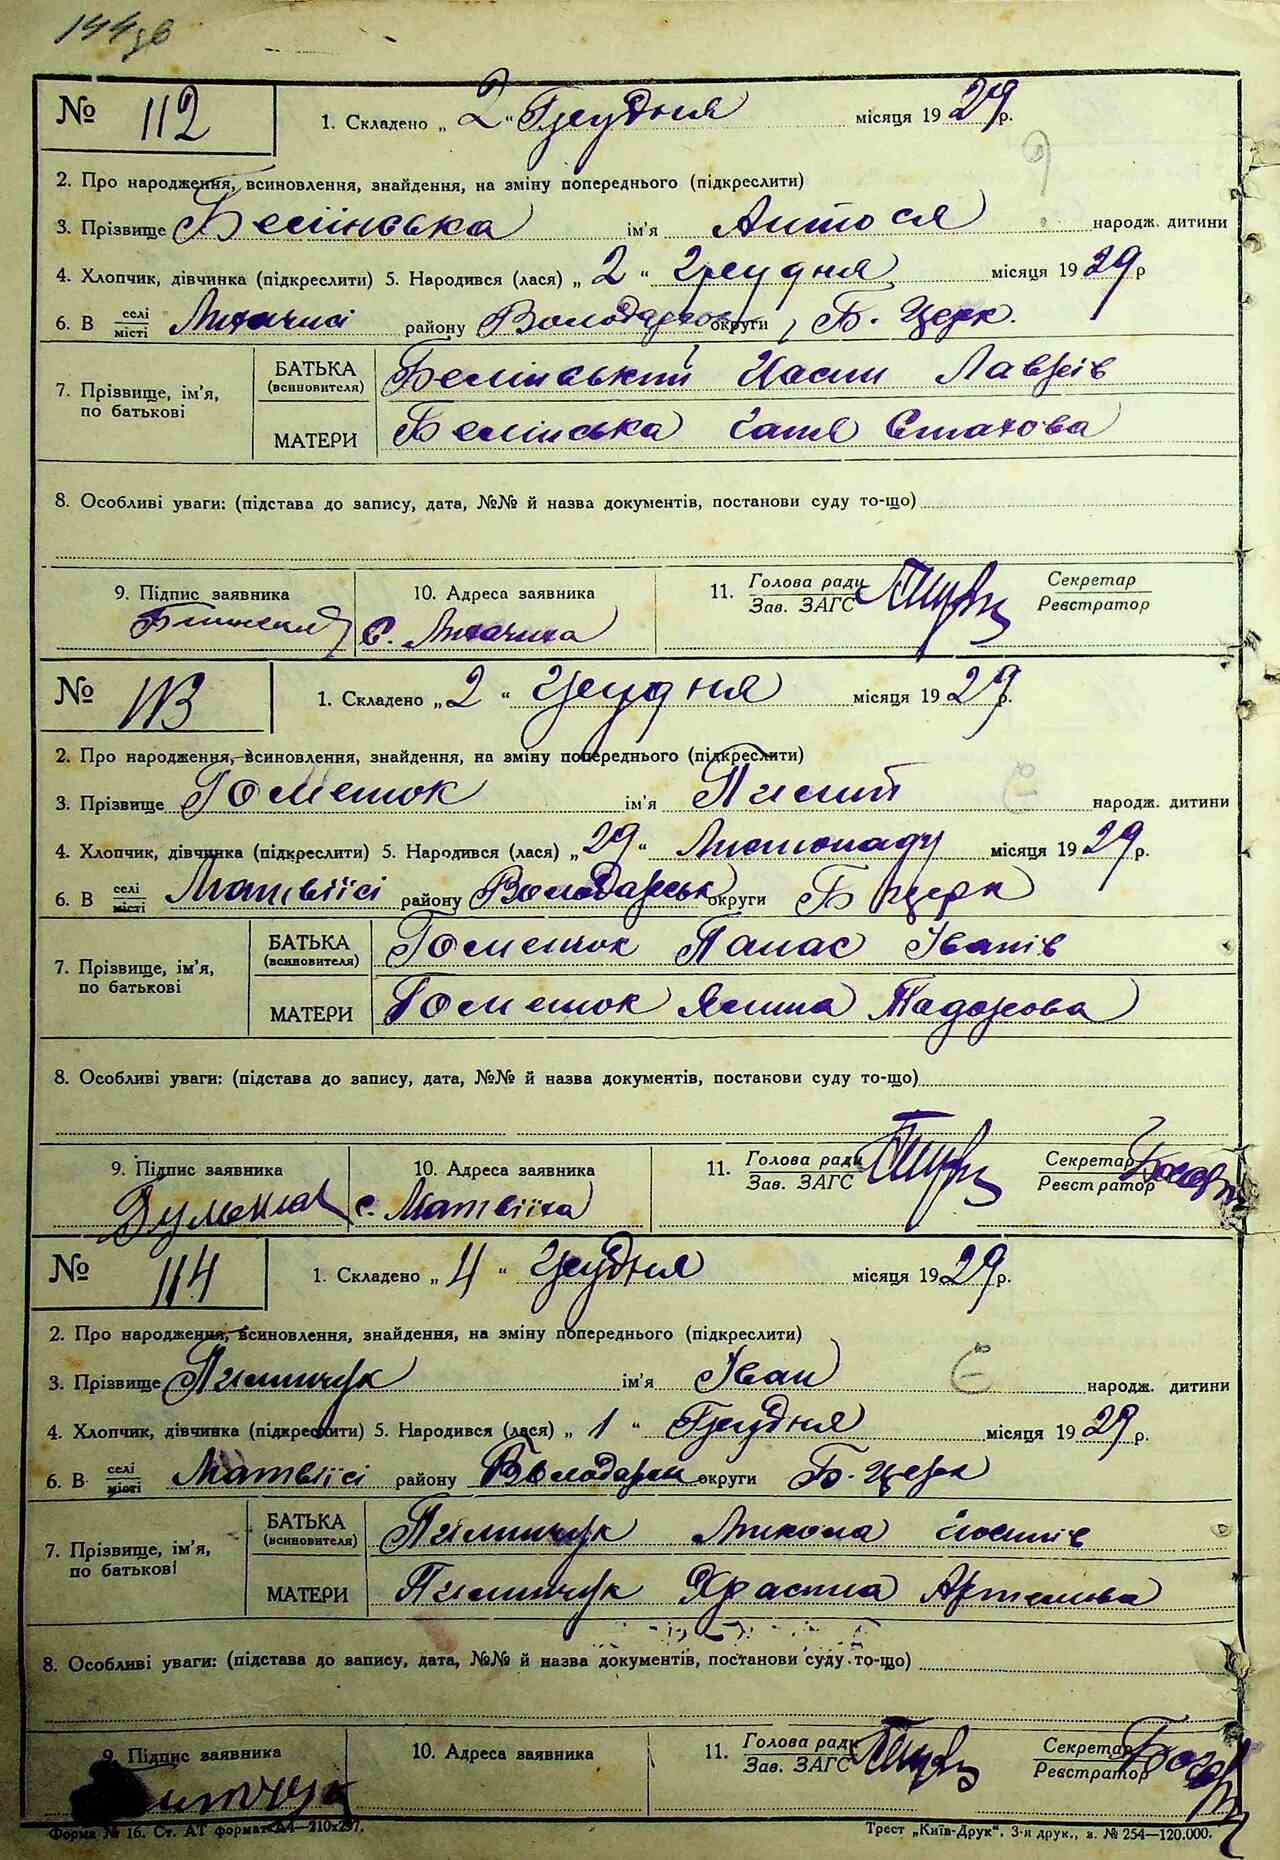 144зв
№ 112 1. Складено „2“ Грудня місяця 1929 р.
2. Про народження, всиновлення, знайдення, на зміну попереднього (підкреслити)
3. Прізвище Белінська ім'я Антося народж. дитини
4. Хлопчик, дівчинка (підкреслити) 5. Народився (лася) „2“ Грудня місяця 1929 р
6. В селі місті Лихачисі району Володарськ округи Б. Церк.
7. Прізвище, ім'я, по батькові БАТЬКА (всиновителя) Белінський Йосип Лаврів
МАТЕРИ Белінська Ганя Стахова
8. Особливі уваги: (підстава до запису, дата, №№ й назва документів, постанови суду то-що)
9. Підпис заявника 10. Адреса заявника 11. Голова ради Зав. ЗАГС Секретар Реєстратор
с. Лихачиха
№ 113 1. Складено „2“ Грудня місяця 1929 р.
2. Про народження, всиновлення, знайдення, на зміну попереднього (підкреслити)
3. Прізвище Гоменюк ім'я Пилип народж. дитини
4. Хлопчик, дівчинка (підкреслити) 5. Народився (лася) „29“ Листопаду місяця 1929 р.
6. В селі місті Матвіїсі району Володарськ округи Б Церк
7. Прізвище, ім'я, по батькові БАТЬКА (всиновителя) Гоменюк Панас Іванів
МАТЕРИ Гоменюк Ялина Тадохова
8. Особливі уваги: (підстава до запису, дата, №№ й назва документів, постанови суду то-що)
9. Підпис заявника 10. Адреса заявника 11. Голова ради Зав. ЗАГС Секретар Реєстратор
с. Матвіїха
№ 114 1. Складено „4“ Грудня місяця 1929 р.
2. Про народження, всиновлення, знайдення, на зміну попереднього (підкреслити)
3. Прізвище Пилипчук ім'я Іван народж. дитини
4. Хлопчик, дівчинка (підкреслити) 5. Народився (лася) „1“ Грудня місяця 1929 р.
6. В селі місті Матвіїсі району Володарськ округи Б. Церк
7. Прізвище, ім'я, по батькові БАТЬКА (всиновителя) Пилипчук Микола Йосипів
МАТЕРИ Пилипчук Христина Артемова
8. Особливі уваги: (підстава до запису, дата, №№ й назва документів, постанови суду то-що)
9. Підпис заявника 10. Адреса заявника 11. Голова ради Зав. ЗАГС Секретар Реєстратор
Форма № 16. Ст. АТ формат А4—210х297. Трест „Київ-Друк“. 3-я друк., з. № 254—120.000.